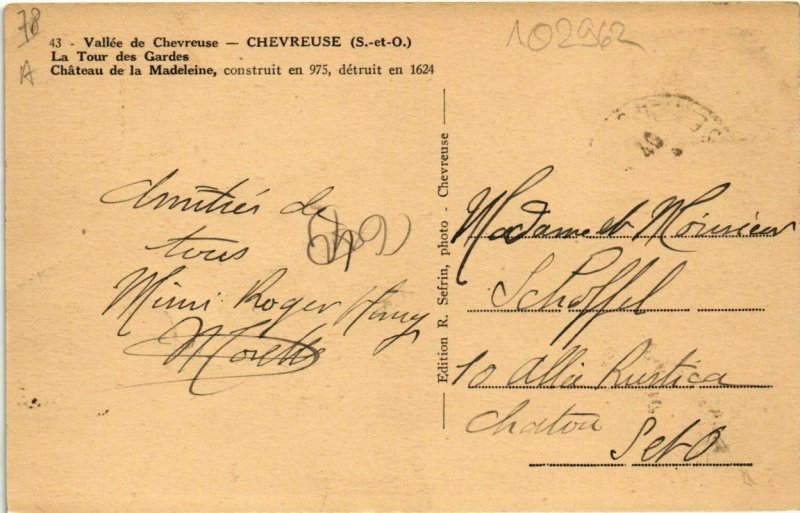 78
A
102962
43 - Vallée de Chevreuse — CHEVREUSE (S.-et-O.)
La Tour des Gardes
Château de la Madeleine, construit en 975, détruit en 1624
Amitiés de
tous
Mimi Roger
Edition R. Sefrin, photo - Chevreuse
Madame et Monsieur
Schoffel
10 allée Rustica
Chatou
S et O